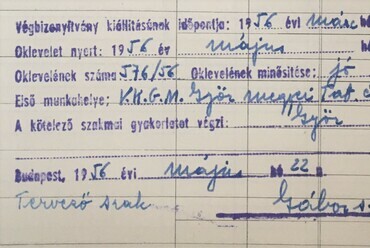 Végbizonyítvány kiállításának időpontja: 1956 évi márc
Oklevelet nyert: 1956 év május hó
Oklevelének száma 576/56 Oklevelének minősítése: jó
Első munkahelye; K.K.G.M. Győr megyei Tat.
A kötelező szakmai gyakorlatot végzi: Győr
Budapest, 1956. évi május hó 22 n.
Tervező szak Gábor